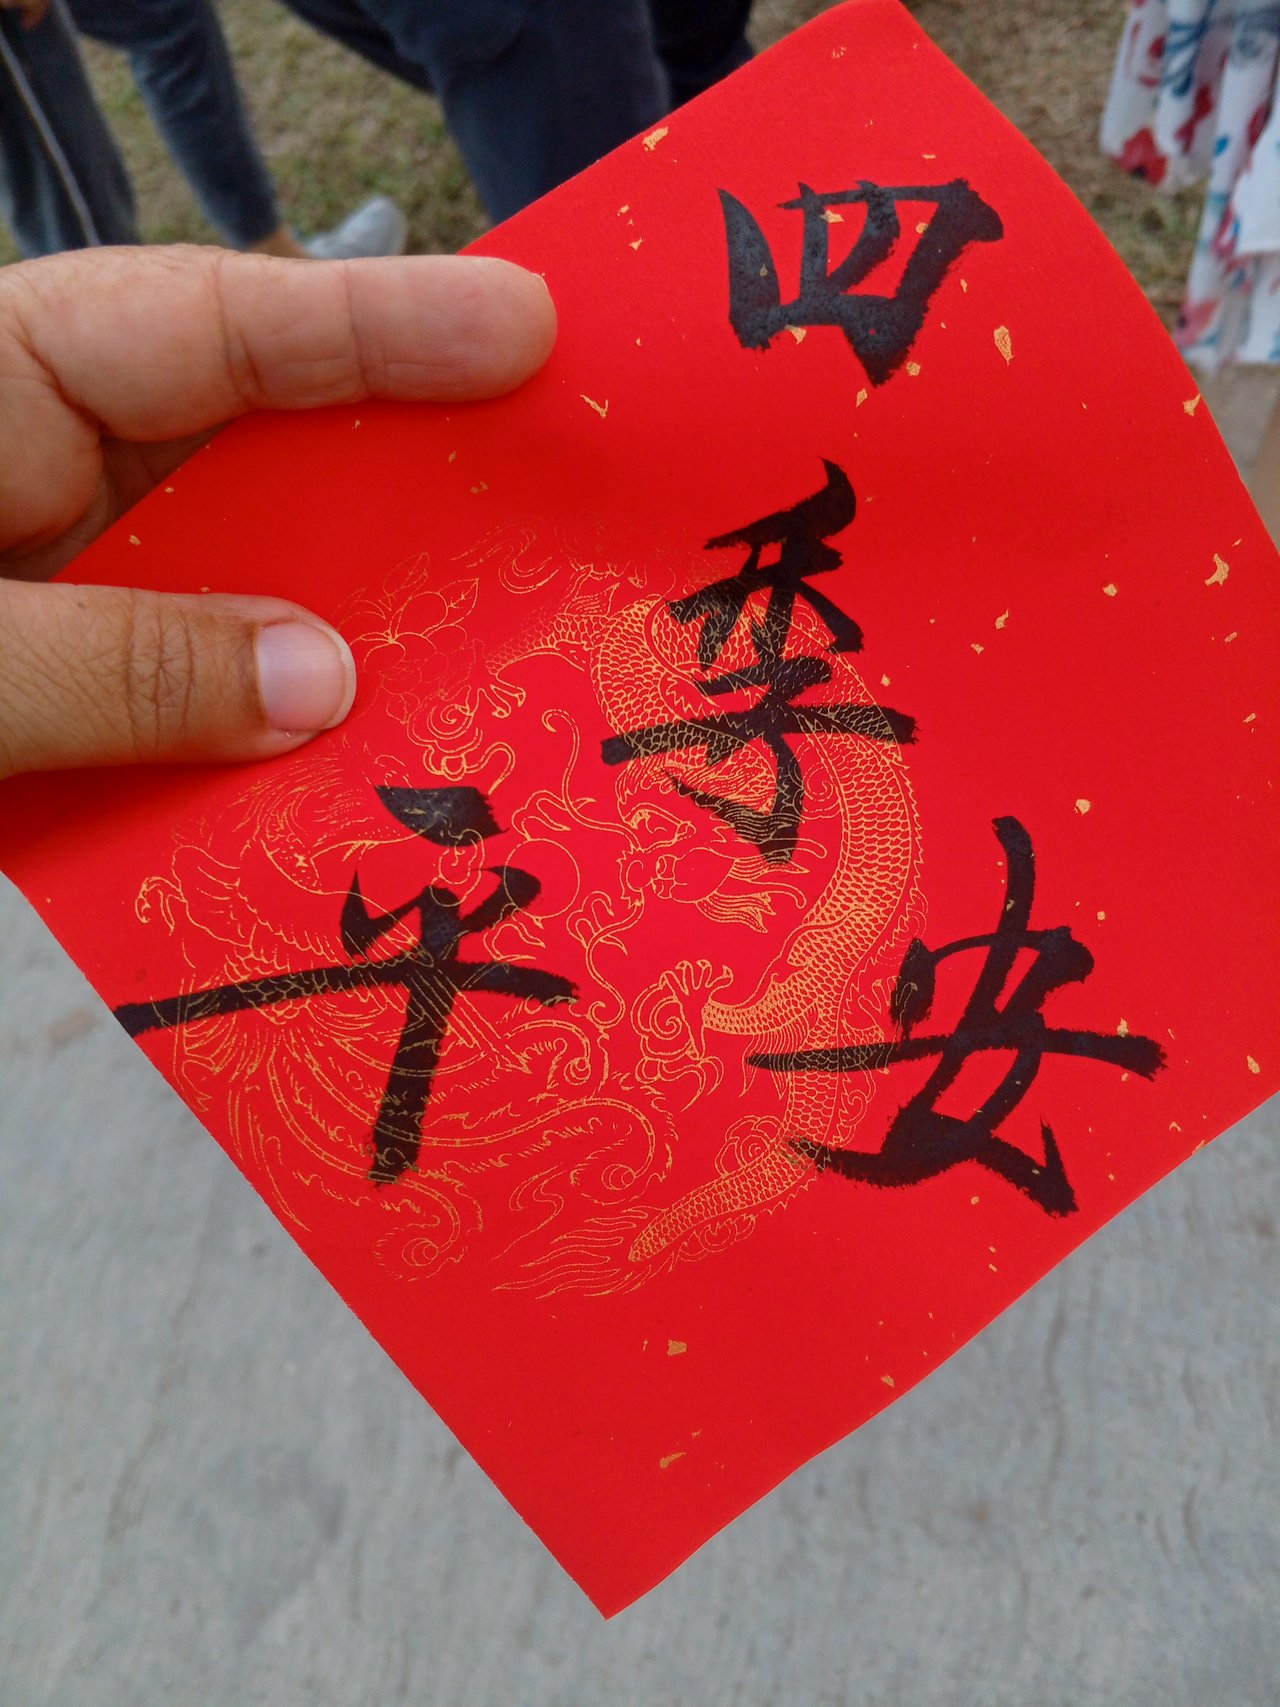 四
季
平安